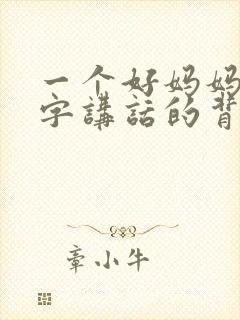 一个好妈妈
字講話的背
章小牛